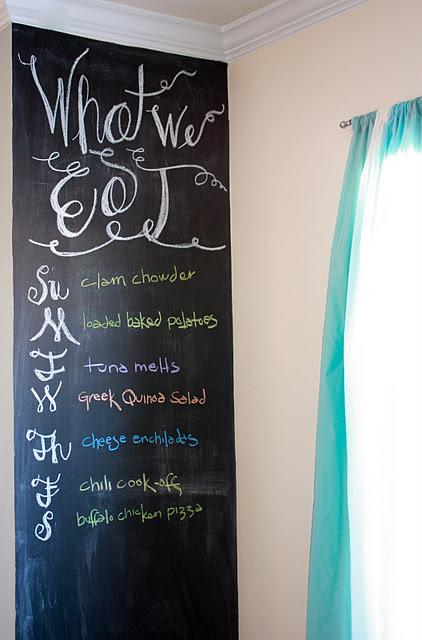 What We
Eat
Su clam chowder
M loaded baked potatoes
T tuna melts
W Greek Quinoa Salad
Th cheese enchiladas
F chili cook-off
S buffalo chicken pizza